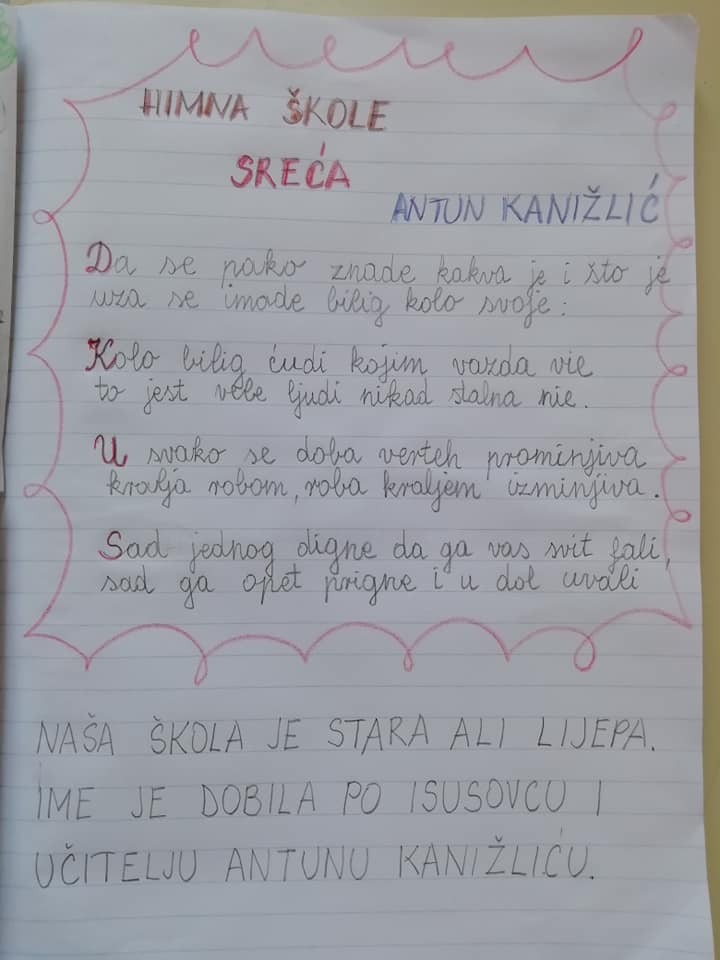 HIMNA ŠKOLE
SREĆA
ANTUN KANIŽLIĆ
Da se pako znade kakva je i što je
uza se imade bilig kolo svoje:
Kolo bilig ćudi kojim vazda vie
to jest vele ljudi nikad stalna nie.
U svako se doba verteh prominjiva
kralja robom, roba kraljem izminjiva.
Sad jednog digne da ga vas svit fali,
sad ga opet prigne i u dol uvali
NAŠA ŠKOLA JE STARA ALI LIJEPA.
IME JE DOBILA PO ISUSOVCU I
UČITELJU ANTUNU KANIŽLIĆU.